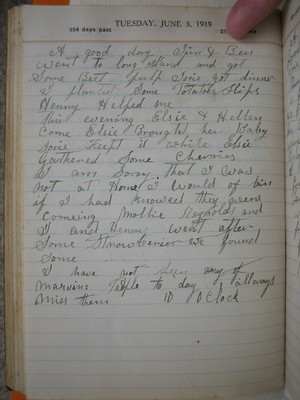 154 days past
TUESDAY, JUNE 3, 1919
A good day Jim & Bees
went to long Island and got
Some Beet pulp Josie got dinner
I planted Some Potatoe Slips
Henny Helped me
this evening Elsie & Hellen
Come Elsie Brought her Baby
Josie Keept it while Elsie
Gathered Some Cherries
I am Sorry that I was
not at Home I would of bin
if I had knowed they were
Comeing Mollie Reynolds and
I and Henny went after
Some Strawberries we found
Some
I have not Seen any of
Marvins People to day I allways
Miss them 10 O Clock